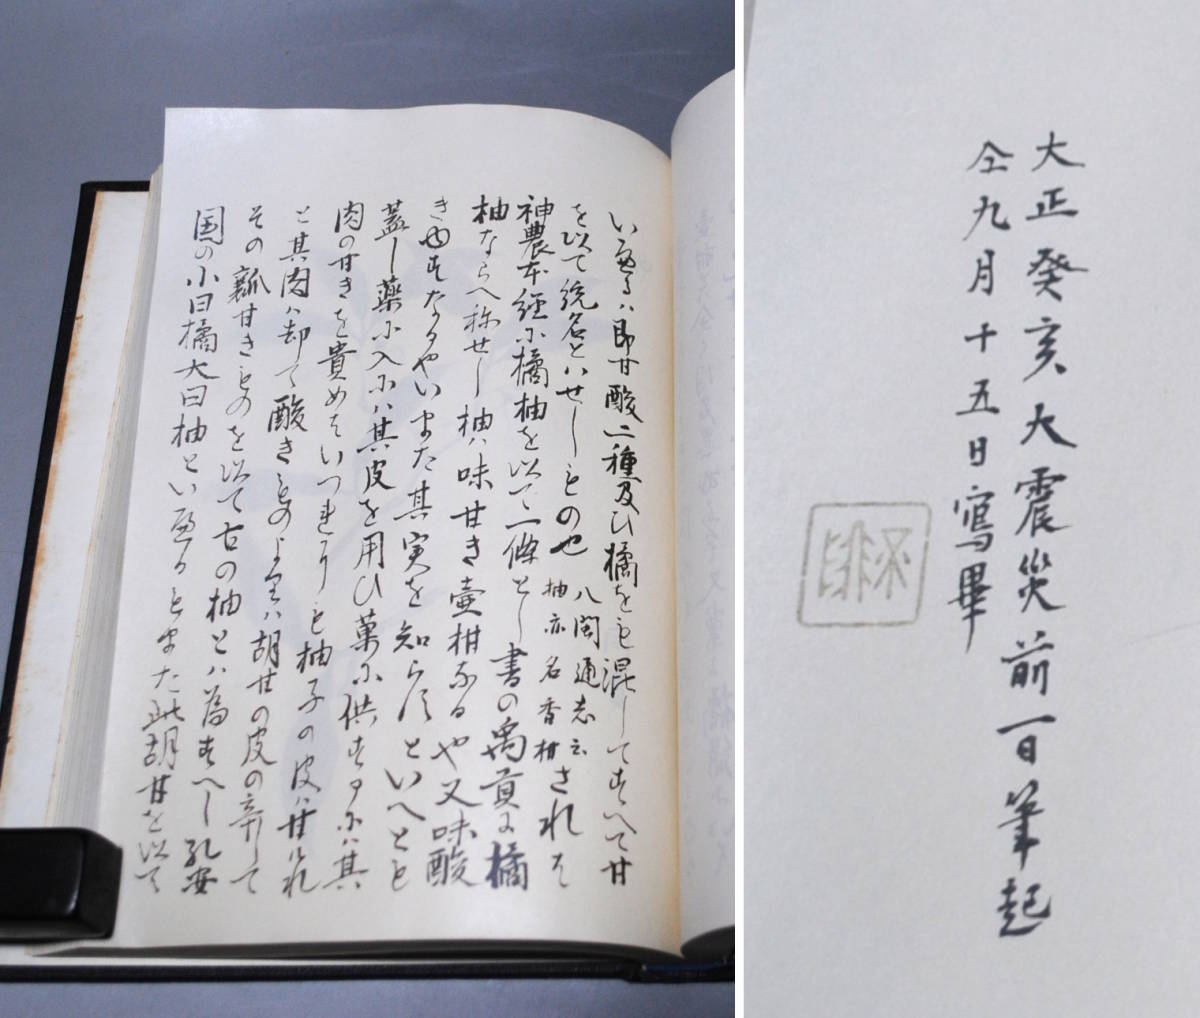 いへるハ即甘酸二種及ひ橘をも混してすへて甘
を以て統名とハせしもの也 八閩通志云 柚亦名香柑 されは
神農本経に橘柚を以て一條とし書の禹貢に橘
柚ならへ称せし柚ハ味甘き壷柑なるや又味酸
きゆすなるやいまた其実を知らすといへとも
蓋し薬に入にハ其皮を用ひ菓に供するにハ其
肉の甘きを貴めはいつれりも柚子の皮ハ甘けれ
と其肉ハ却て酸きものよりハ胡甘の皮の辛して
その瓤甘きものを以て古の柚とハ為すへし孔安
国の小曰橘大曰柚といへるもまた此胡甘を以て
大正癸亥大震災前一日筆起
仝九月十五日寫畢